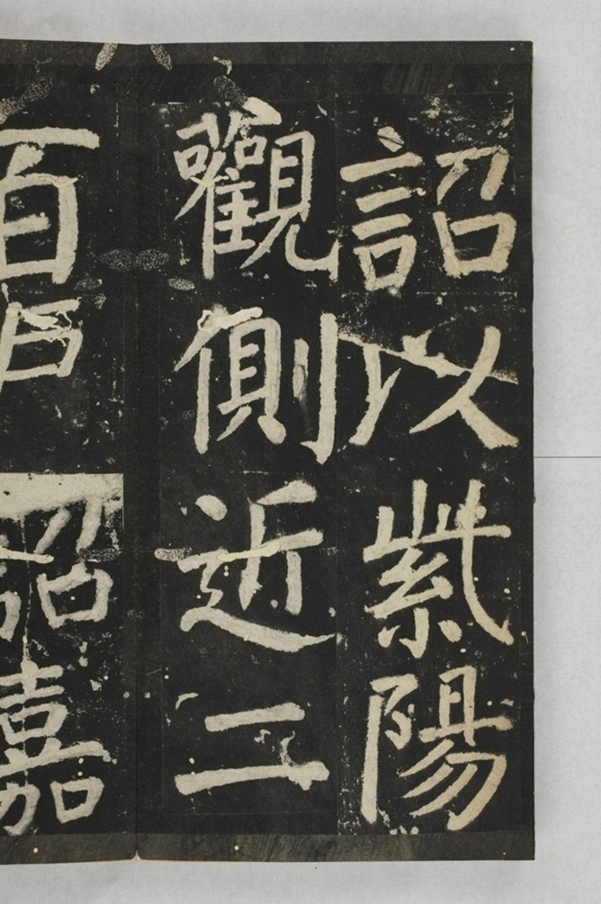 詔以紫陽
觀側近二
百戶
詔嘉